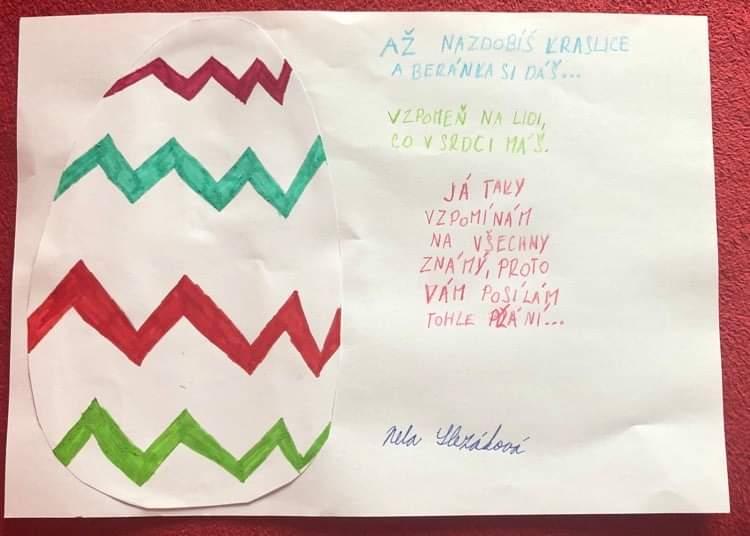 AŽ NAZDOBÍŠ KRASLICE
A BERÁNKA SI DÁŠ...
VZPOMEŇ NA LIDI,
CO V SRDCI MÁŠ.
JÁ TAKY
VZPOMÍNÁM
NA VŠECHNY
ZNÁMÝ, PROTO
VÁM POSÍLÁM
TOHLE PŘÁNÍ...
Nela Slezáková